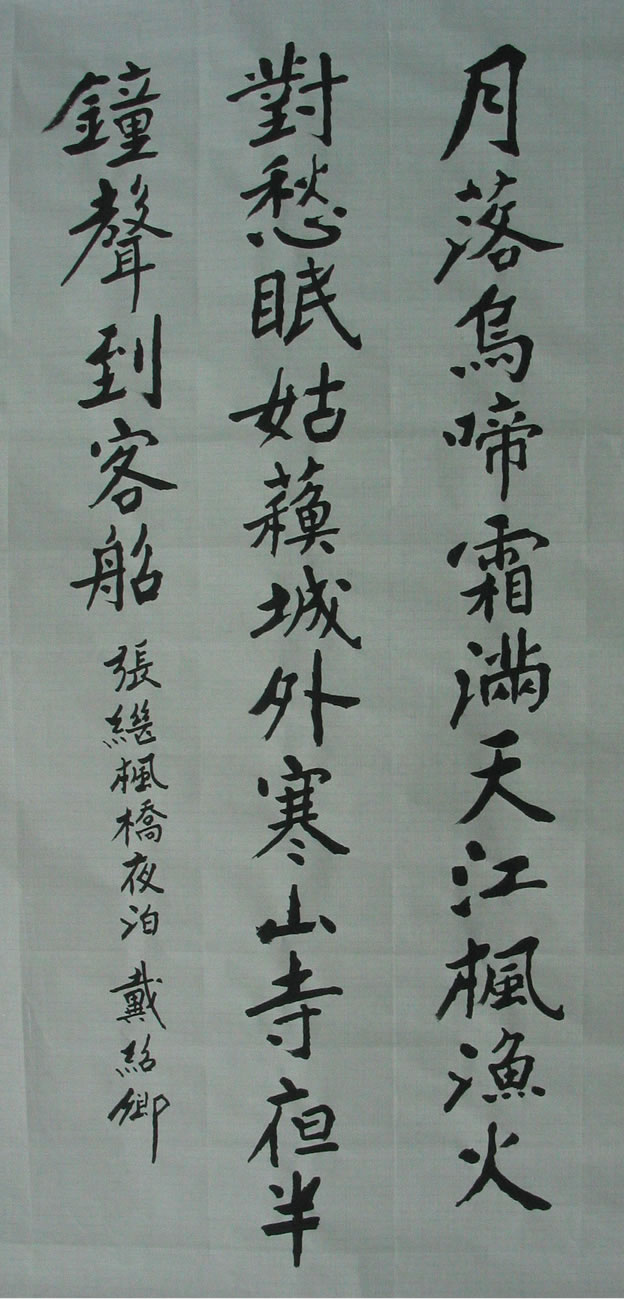 月落烏啼霜滿天江楓漁火
對愁眠姑蘓城外寒山寺亱半
鐘聲到客船 張繼楓橋夜泊 戴紹卿